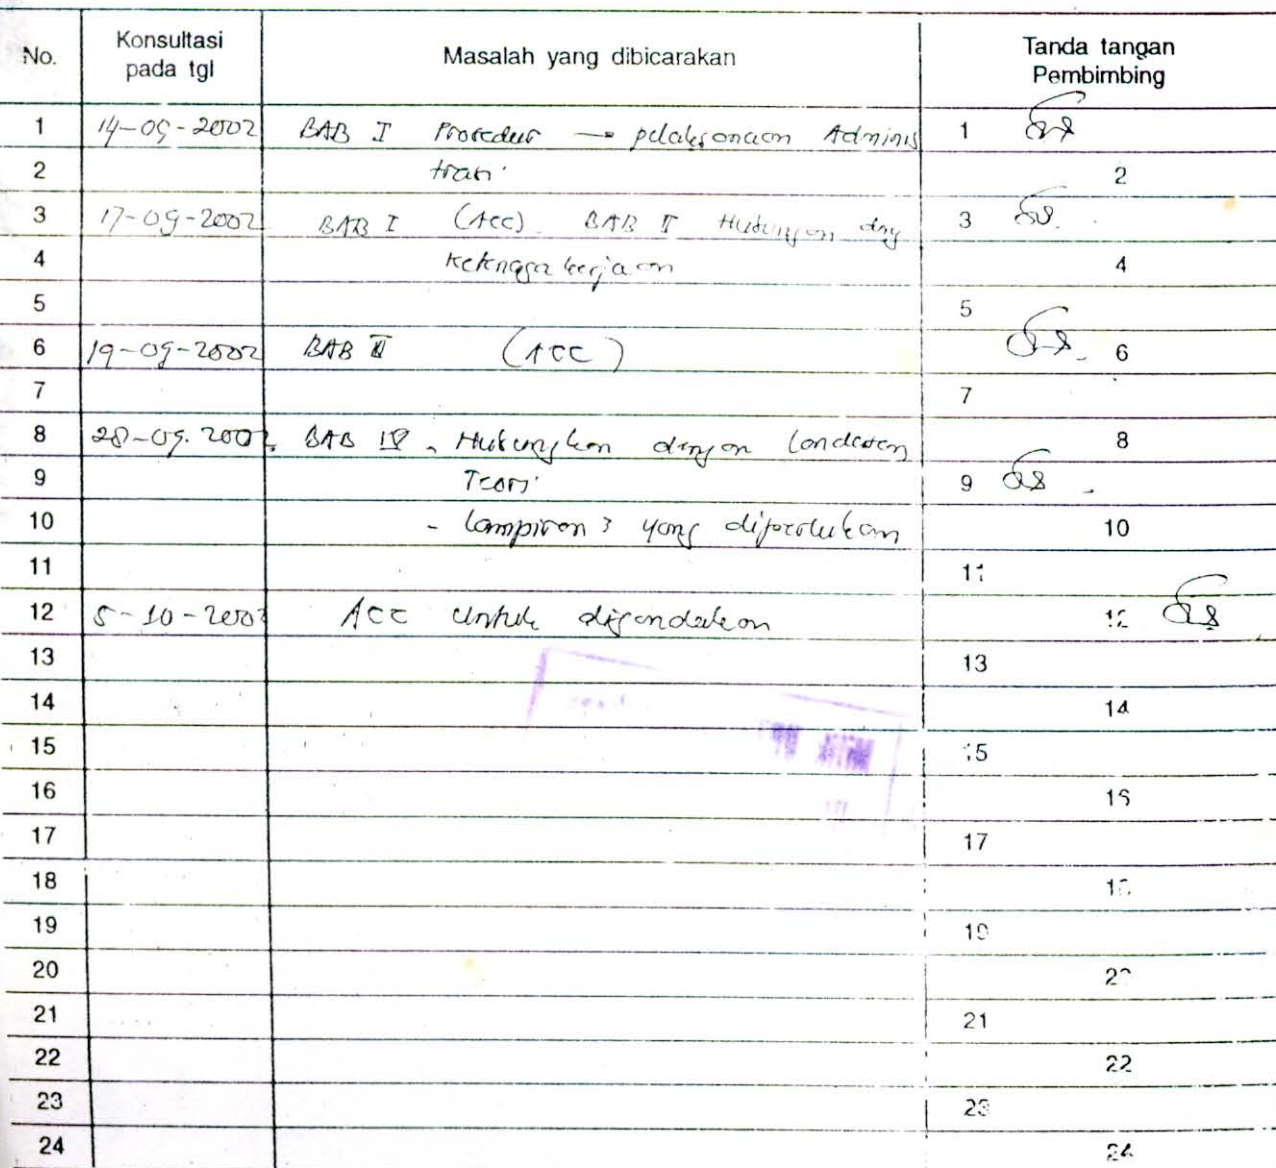 No. Konsultasi pada tgl Masalah yang dibicarakan Tanda tangan Pembimbing
1 14-09-2002 BAB I Prosedur → pelaksanaan Adminis 1
2 trasi 2
3 17-09-2002 BAB I (Acc). BAB II Hubungan dng 3
4 Ketenaga kerjaan 4
5 5
6 19-09-2002 BAB III (ACC) 6
7 7
8 28-09-2002 BAB IV - Hubungkan dengan landasan 8
9 Teori 9
10 - lampiran yang diperlukan 10
11 11
12 5-10-2002 ACC untuk digandakan 12
13 13
14 14
15 15
16 16
17 17
18 18
19 19
20 20
21 21
22 22
23 23
24 24